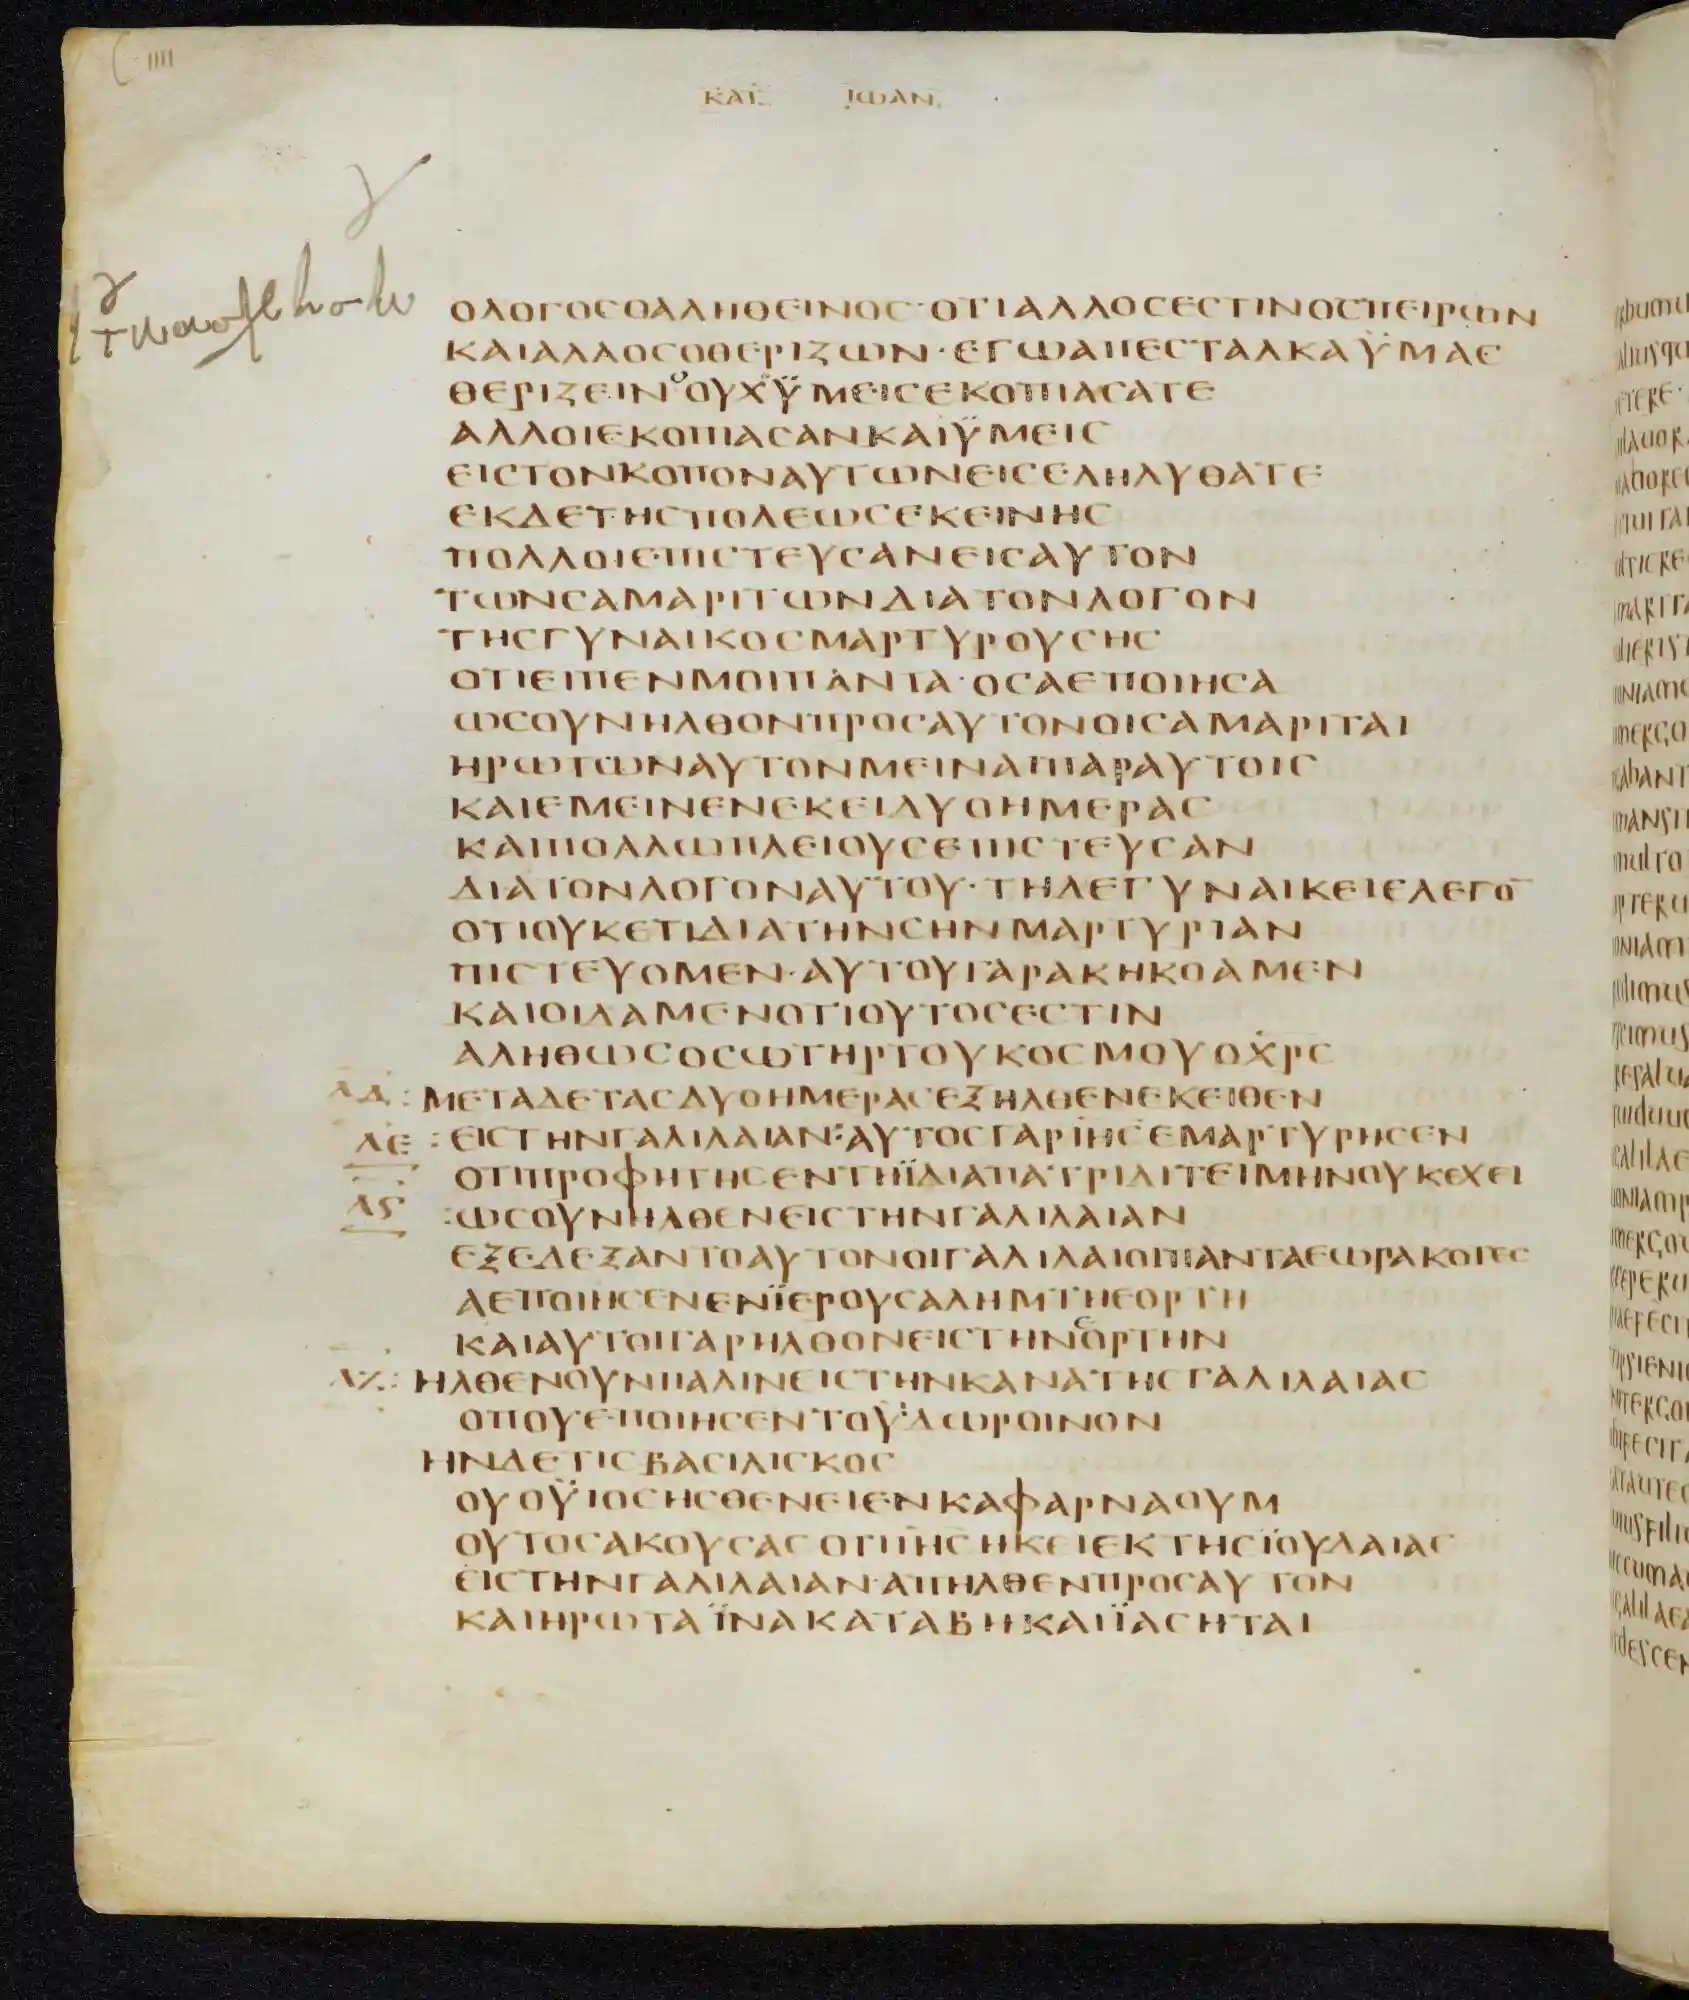 ΚΑΤ ΙΩΑΝ
ΟΛΟΓΟΣΟΑΛΗΘΕΙΝΟΣ· ΟΤΙΑΛΛΟΣΕΣΤΙΝΟΣΠΕΙΡΩΝ
ΚΑΙΑΛΛΟΣΟΘΕΡΙΖΩΝ· ΕΓΩΑΠΕΣΤΑΛΚΑΫΜΑΣ
ΘΕΡΙΖΕΙΝΟΟΥΧΫΜΕΙΣΕΚΟΠΙΑΣΑΤΕ
ΑΛΛΟΙΕΚΟΠΙΑΣΑΝΚΑΙΫΜΕΙΣ
ΕΙΣΤΟΝΚΟΠΟΝΑΥΤΩΝΕΙΣΕΛΗΛΥΘΑΤΕ
ΕΚΔΕΤΗΣΠΟΛΕΩΣΕΚΕΙΝΗΣ
ΠΟΛΛΟΙΕΠΙΣΤΕΥΣΑΝΕΙΣΑΥΤΟΝ
ΤΩΝΣΑΜΑΡΙΤΩΝΔΙΑΤΟΝΛΟΓΟΝ
ΤΗΣΓΥΝΑΙΚΟΣΜΑΡΤΥΡΟΥΣΗΣ
ΟΤΙΕΙΠΕΝΜΟΙΠΑΝΤΑ· ΟΣΑΕΠΟΙΗΣΑ
ΩΣΟΥΝΗΛΘΟΝΠΡΟΣΑΥΤΟΝΟΙΣΑΜΑΡΙΤΑΙ
ΗΡΩΤΩΝΑΥΤΟΝΜΕΙΝΑΙΠΑΡΑΥΤΟΙΣ
ΚΑΙΕΜΕΙΝΕΝΕΚΕΙΔΥΟΗΜΕΡΑΣ
ΚΑΙΠΟΛΛΩΠΛΕΙΟΥΣΕΠΙΣΤΕΥΣΑΝ
ΔΙΑΤΟΝΛΟΓΟΝΑΥΤΟΥ· ΤΗΔΕΓΥΝΑΙΚΕΙΕΛΕΓΟ̅
ΟΤΙΟΥΚΕΤΙΔΙΑΤΗΝΣΗΝΜΑΡΤΥΡΙΑΝ
ΠΙΣΤΕΥΟΜΕΝ· ΑΥΤΟΥΓΑΡΑΚΗΚΟΑΜΕΝ
ΚΑΙΟΙΔΑΜΕΝΟΤΙΟΥΤΟΣΕΣΤΙΝ
ΑΛΗΘΩΣΟΣΩΤΗΡΤΟΥΚΟΣΜΟΥΟΧΡΣ
ΛΔ: ΜΕΤΑΔΕΤΑΣΔΥΟΗΜΕΡΑΣΕΞΗΛΘΕΝΕΚΕΙΘΕΝ
ΛΕ: ΕΙΣΤΗΝΓΑΛΙΛΑΙΑΝ: ΑΥΤΟΣΓΑΡΙΗΣΕΜΑΡΤΥΡΗΣΕΝ
ΟΤΙΠΡΟΦΗΤΗΣΕΝΤΗΪΔΙΑΠΑΤΡΙΔΙΤΕΙΜΗΝΟΥΚΕΧΕΙ
ΛϚ: ΩΣΟΥΝΗΛΘΕΝΕΙΣΤΗΝΓΑΛΙΛΑΙΑΝ
ΕΞΕΔΕΞΑΝΤΟΑΥΤΟΝΟΙΓΑΛΙΛΑΙΟΙΠΑΝΤΑΕΩΡΑΚΟΤΕΣ
ΑΕΠΟΙΗΣΕΝΕΝΪΕΡΟΥΣΑΛΗΜΤΗΕΟΡΤΗ
ΚΑΙΑΥΤΟΙΓΑΡΗΛΘΟΝΕΙΣΤΗΝΕΟΡΤΗΝ
ΛΖ: ΗΛΘΕΝΟΥΝΠΑΛΙΝΕΙΣΤΗΝΚΑΝΑΤΗΣΓΑΛΙΛΑΙΑΣ
ΟΠΟΥΕΠΟΙΗΣΕΝΤΟΥΔΩΡΟΙΝΟΝ
ΗΝΔΕΤΙΣΒΑΣΙΛΙΣΚΟΣ
ΟΥΟΫΙΟΣΗΣΘΕΝΕΙΕΝΚΑΦΑΡΝΑΟΥΜ
ΟΥΤΟΣΑΚΟΥΣΑΣΟΤΙΙΗΣΗΚΕΙΕΚΤΗΣΪΟΥΔΑΙΑΣ
ΕΙΣΤΗΝΓΑΛΙΛΑΙΑΝ· ΑΠΗΛΘΕΝΠΡΟΣΑΥΤΟΝ
ΚΑΙΗΡΩΤΑΪΝΑΚΑΤΑΒΗΚΑΙΪΑΣΗΤΑΙ